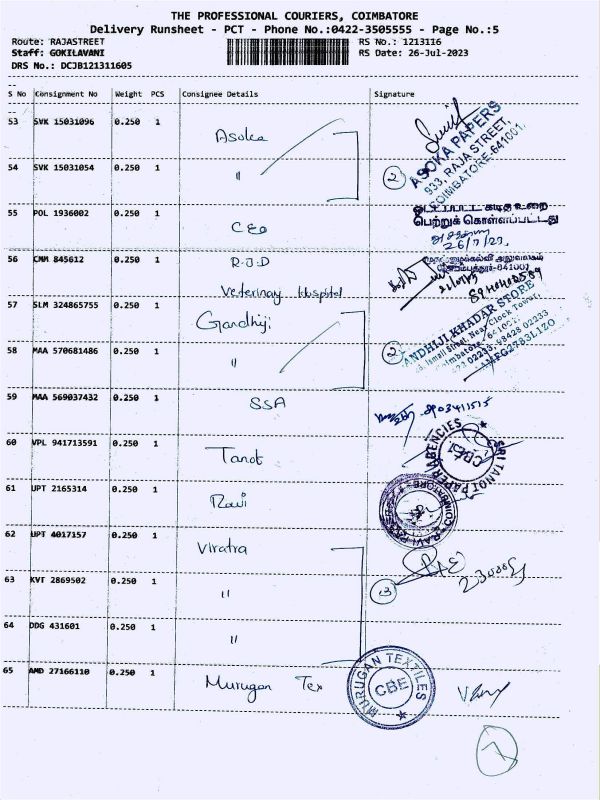 THE PROFESSIONAL COURIERS, COIMBATORE
Delivery Runsheet - PCT - Phone No.:0422-3505555 - Page No.:5
Route: RAJASTREET
RS No.: 1213116
Staff: GOKILAVANI
RS Date: 26-Jul-2023
DRS No.: DCJB121311605
S No Consignment No Weight PCS Consignee Details Signature
53 SVK 15031096 0.250 1 Asoka
ASOKA PAPERS
933, RAJA STREET,
COIMBATORE-641001.
54 SVK 15031054 0.250 1 "
2
55 POL 1936002 0.250 1 CEO
பெற்றுக் கொள்ளப்பட்டது
26/7/23,
56 CMM 845612 0.250 1 R.J.D
Veterinary Hospital
57 SLM 324865755 0.250 1 Gandhiji
ANDHIJI KHADAR STORE
58 MAA 570681486 0.250 1 "
2
59 MAA 569037432 0.250 1 SSA
8903411515
60 VPL 941713591 0.250 1 Tanot
SRI TANOT PAPER AGENCIES
CBE-1
61 UPT 2165314 0.250 1 Ravi
62 UPT 4017157 0.250 1 Viratra
63 KVT 2869502 0.250 1 "
3
64 DDG 431601 0.250 1 "
65 AMD 27166110 0.250 1 Murugan Tex
MURUGAN TEXTILES
CBE